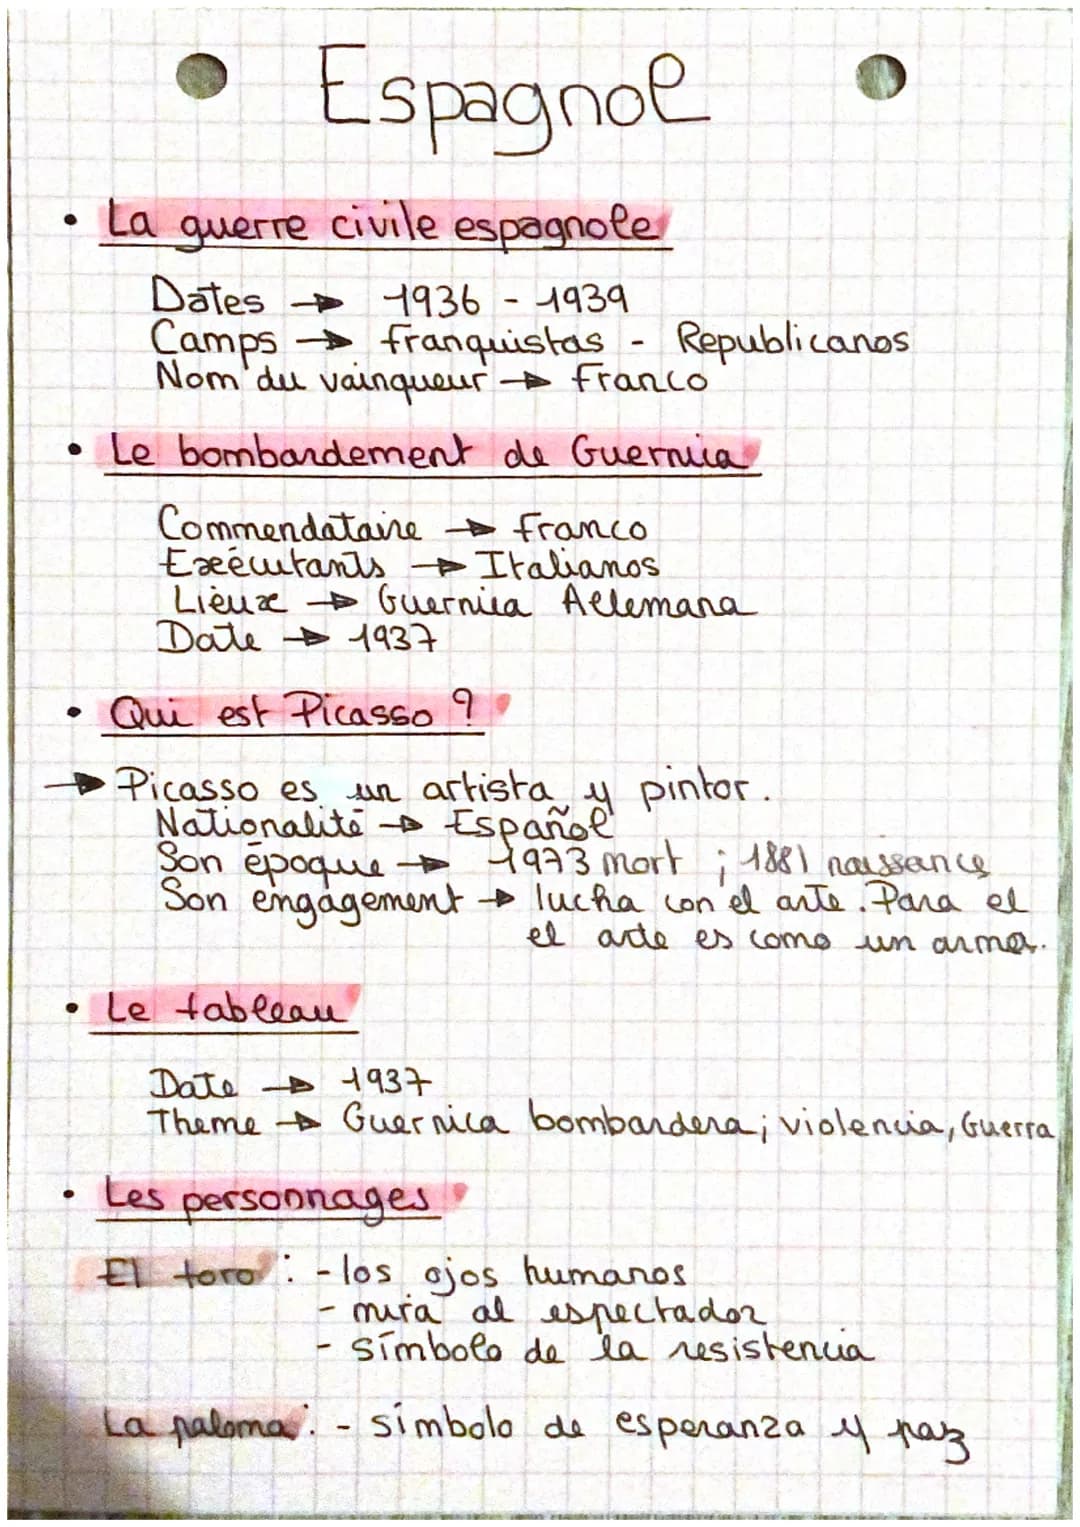 Espagnol
• La guerre civile espagnole
Dates → 1936 - 1939
Camps → franquistas - Republicanos
Nom du vainqueur → Franco
• Le bombardement de Guernica
Commendataire → Franco
Exécutants → Italianos
Lieux → Guernica Allemana
Date → 1937
• Qui est Picasso ?
→ Picasso es un artista y pintor.
Nationalité → Español
Son époque → 1973 mort ; 1881 naissance
Son engagement → lucha con el arte. Para el
el arte es como un arma.
• Le tableau
Date → 1937
Theme → Guernica bombardera; violencia, Guerra
• Les personnages
El toro : - los ojos humanos
- mira al espectador
- símbolo de la resistencia
La paloma : - símbolo de esperanza y paz